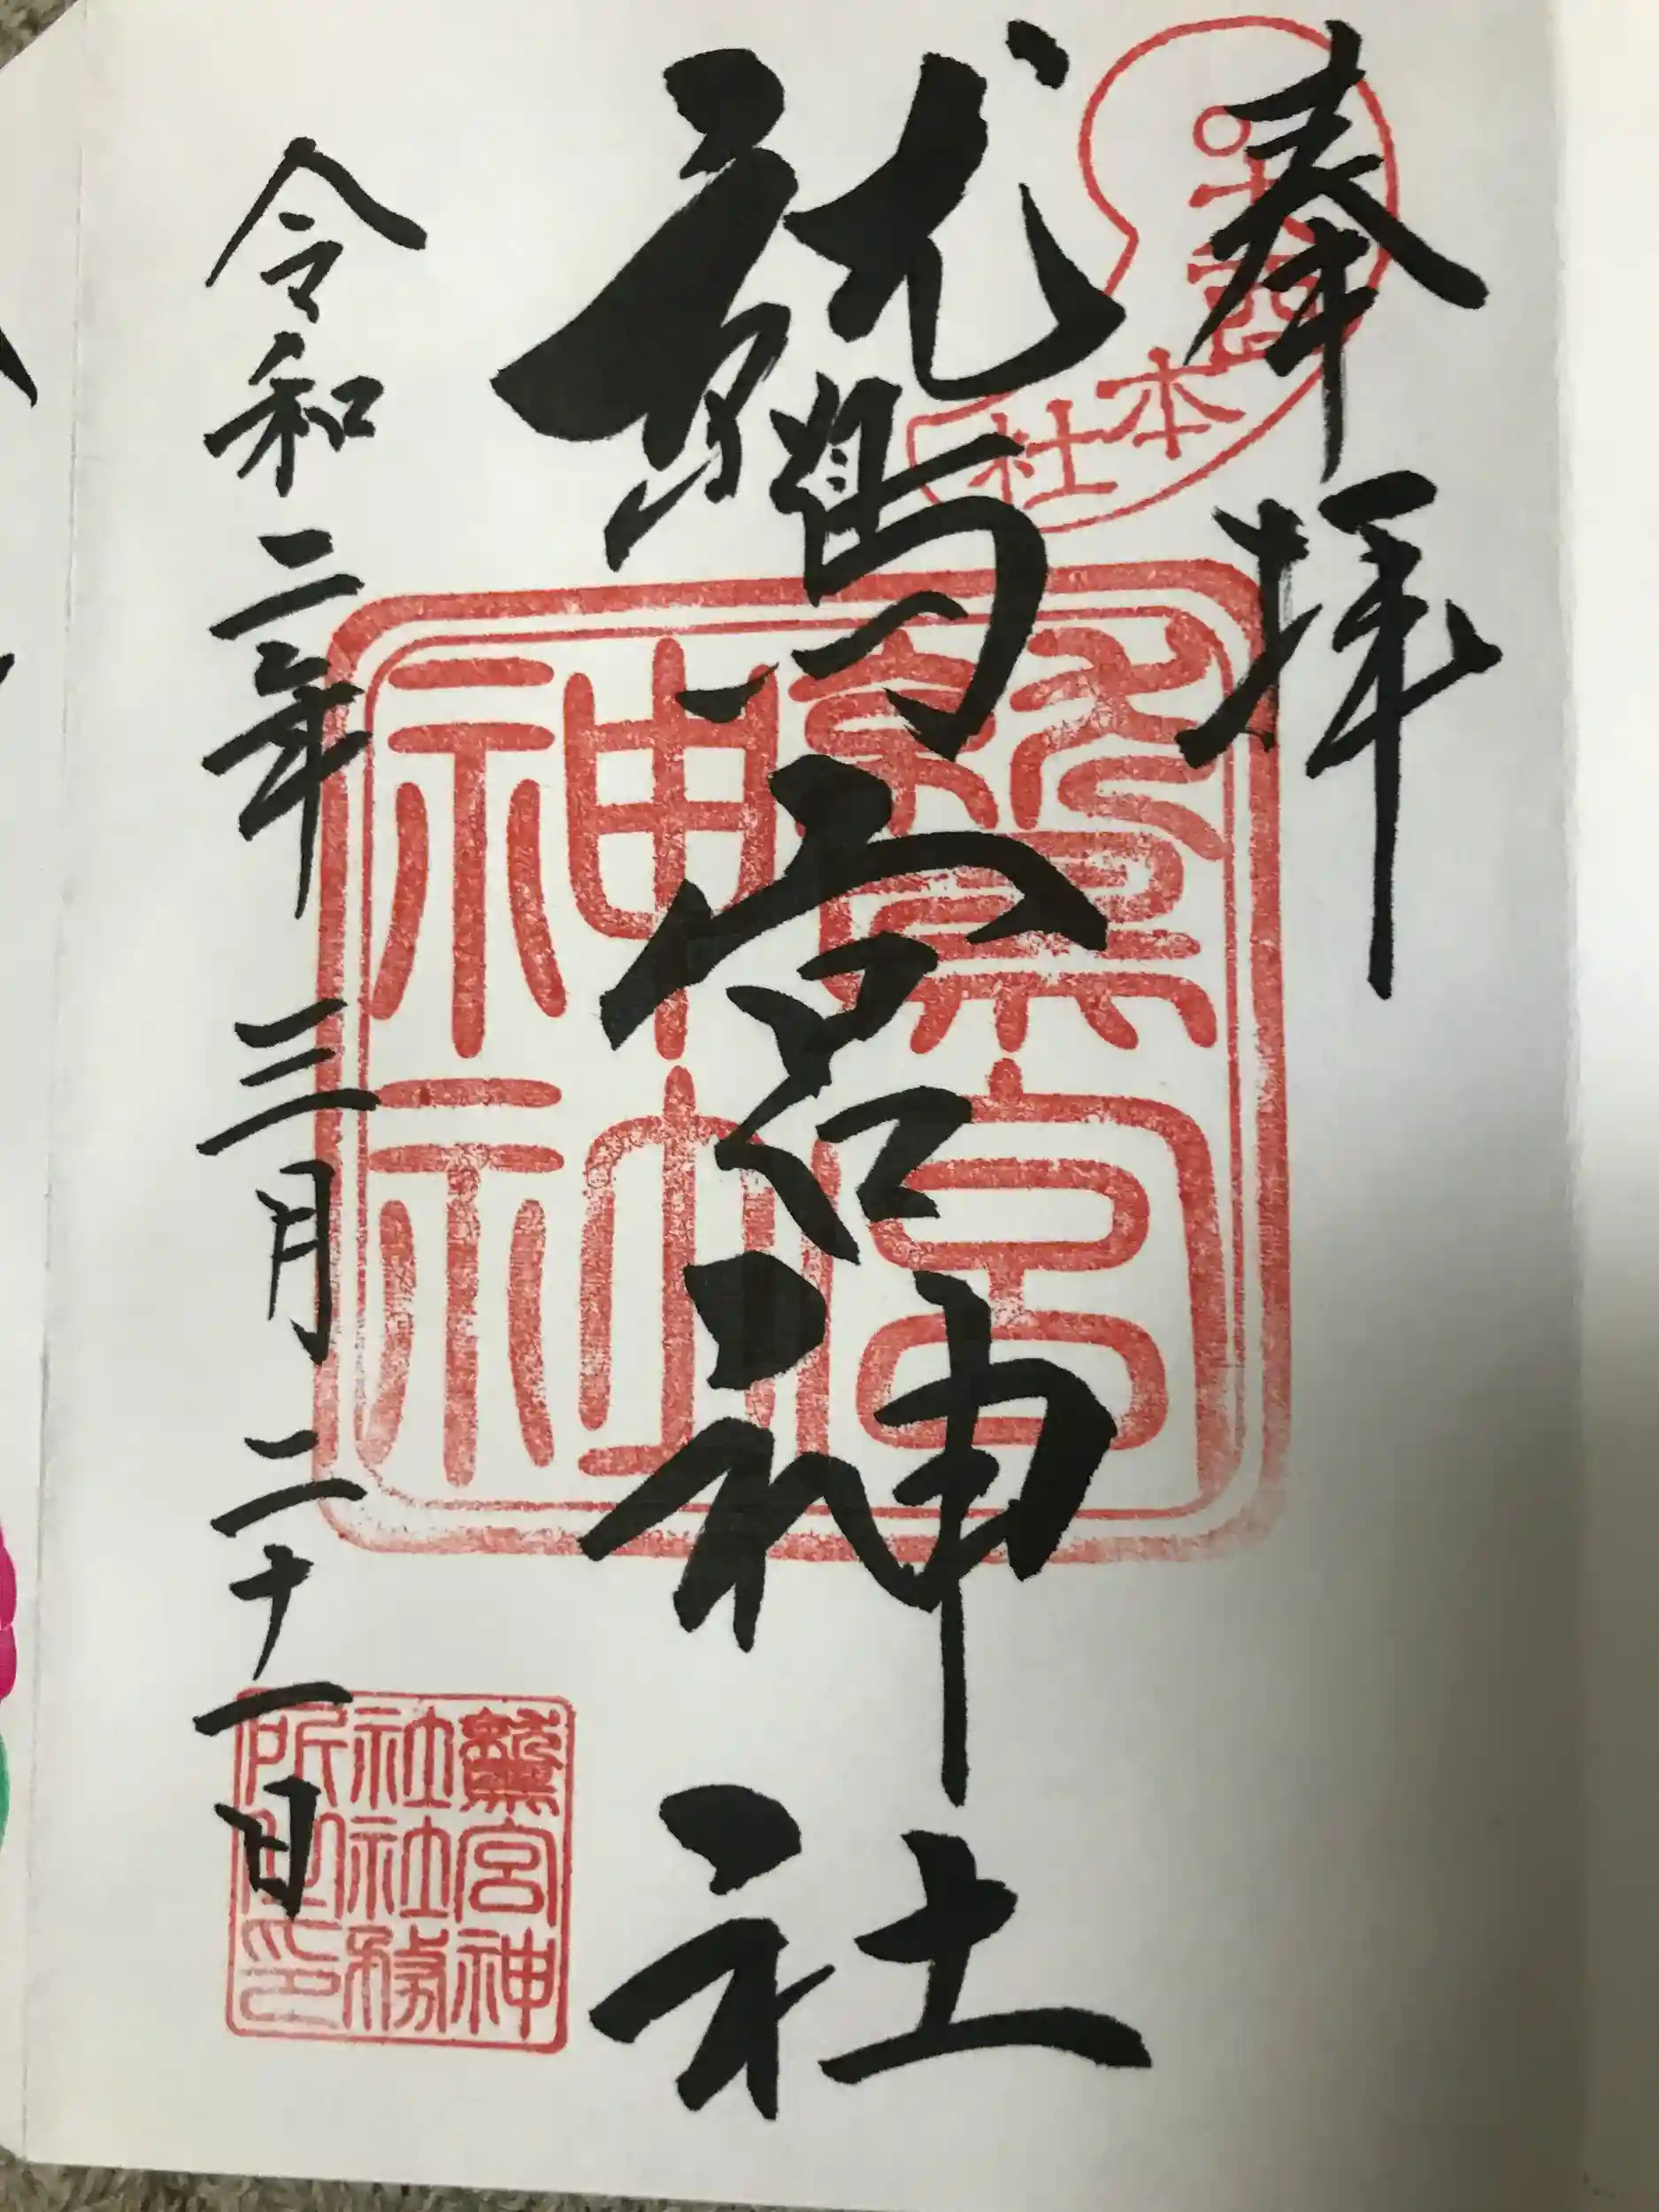 奉拝
本社
鷲宮神社
鷲宮神社
令和二年 三月 二十一日
鷲宮神
社社務
所之印